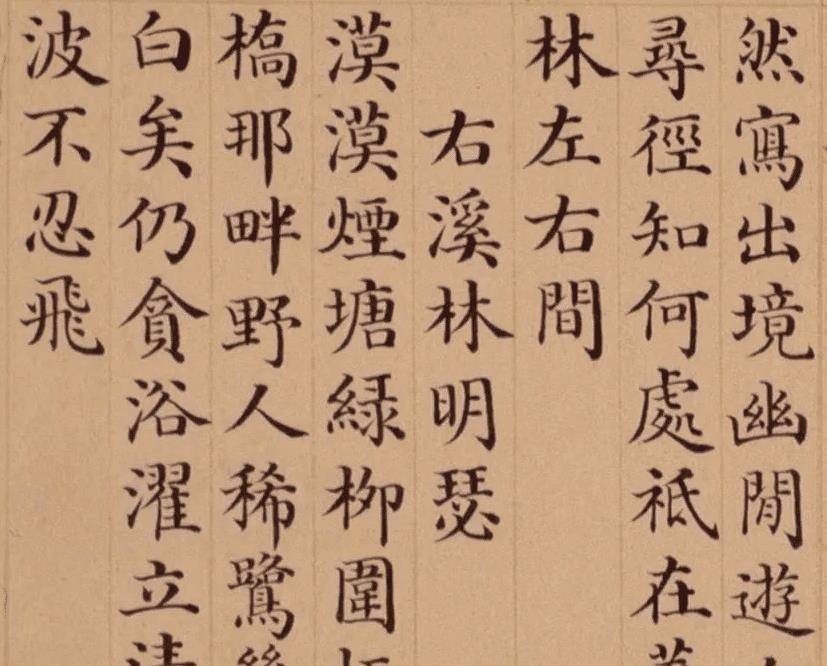 然寫出境幽閒遊
尋徑知何處祗在
林左右間
右溪林明瑟
漠漠煙塘綠柳圍
橋那畔野人稀鷺
白矣仍貪浴濯立
波不忍飛